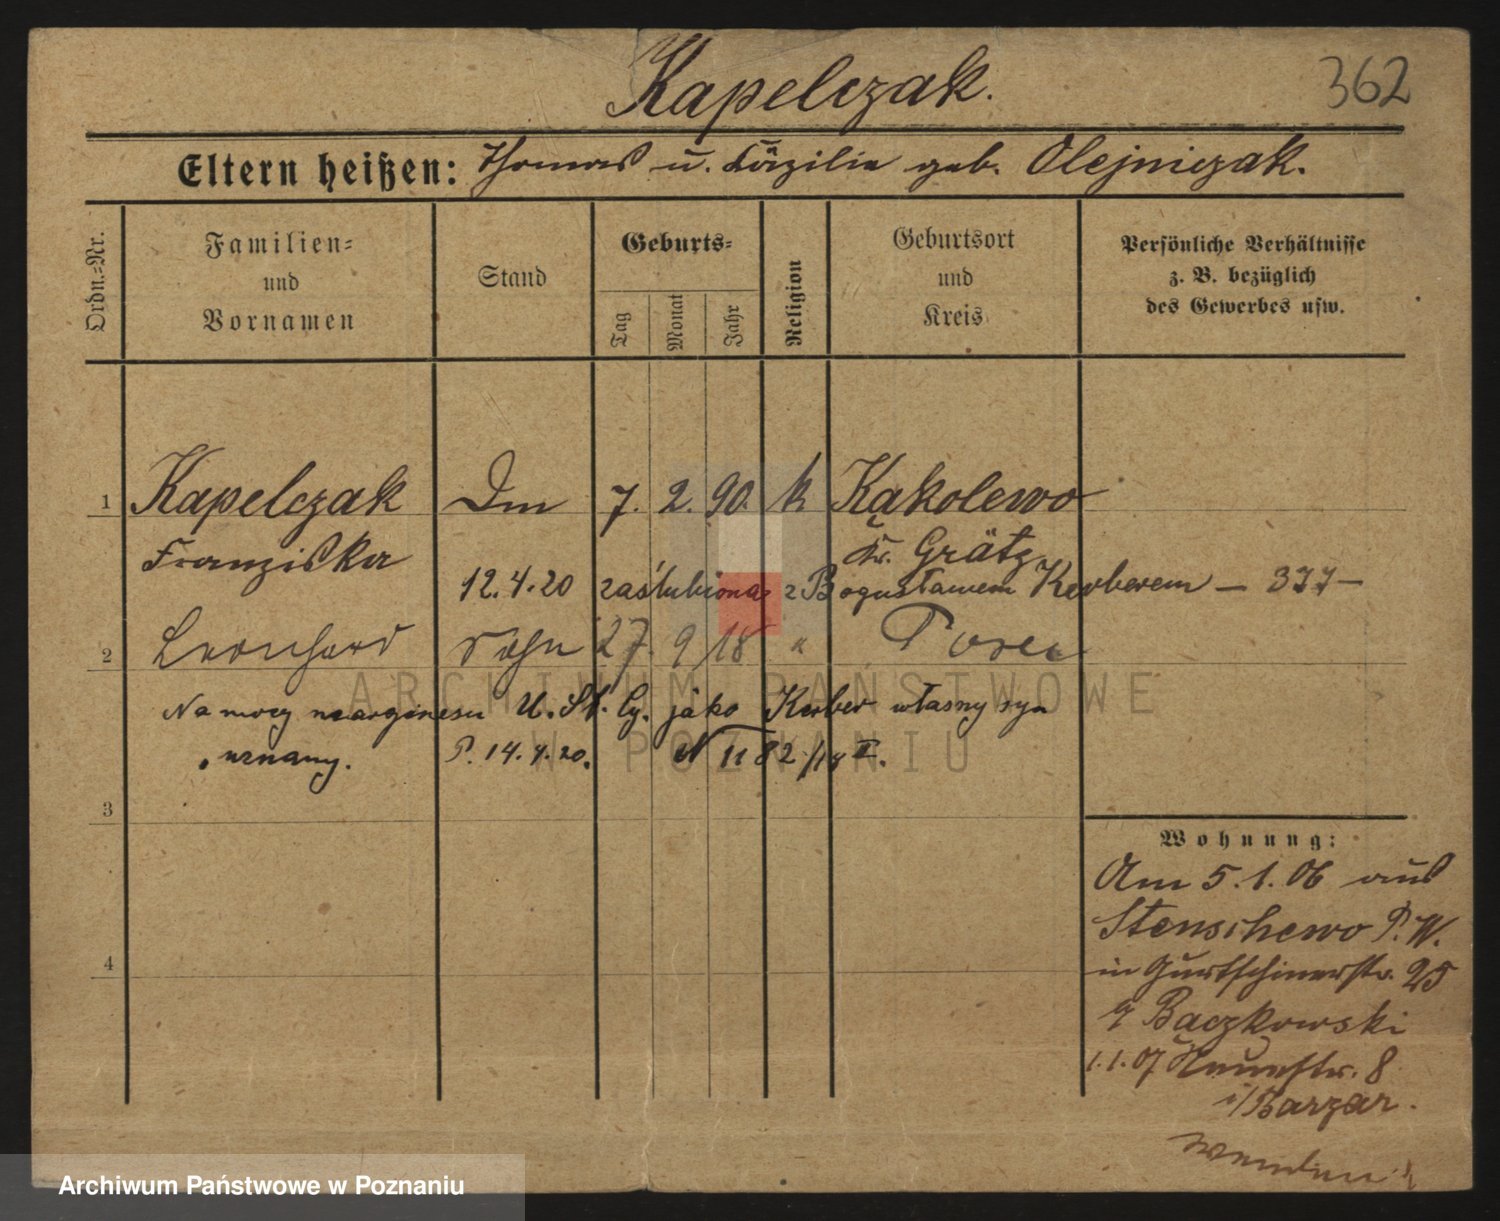 Kapelczak. 362
Eltern heißen: Thomas u. Cäzilie geb. Olejniczak.
Ordn.-Nr.
Familien-
und
Vornamen
Stand
Geburts-
Tag
Monat
Jahr
Religion
Geburtsort
und
Kreis
Persönliche Verhältnisse
z. B. bezüglich
des Gewerbes usw.
1 Kapelczak Dm 7. 2. 90. k Kąkolewo
Franziska Kr. Grätz
12.4.20 zaślubiona z Bogusławem Kerberem — 377 —
2 Leonhard Sohn 27. 9 18 " Posen
Na mocy marginesu U. St. Cy. jako Kerber własny syn
uznany. P. 14.4.20. N 1182/18 II.
3
4
Wohnung:
Am 5.1.06 aus
Stenschewo P. W.
in Gurtschinerstr. 25
Bączkowski
1.1.07 Neuestr. 8
i/Barzar.
wenden!
ARCHIWUM PAŃSTWOWE
W POZNANIU
Archiwum Państwowe w Poznaniu